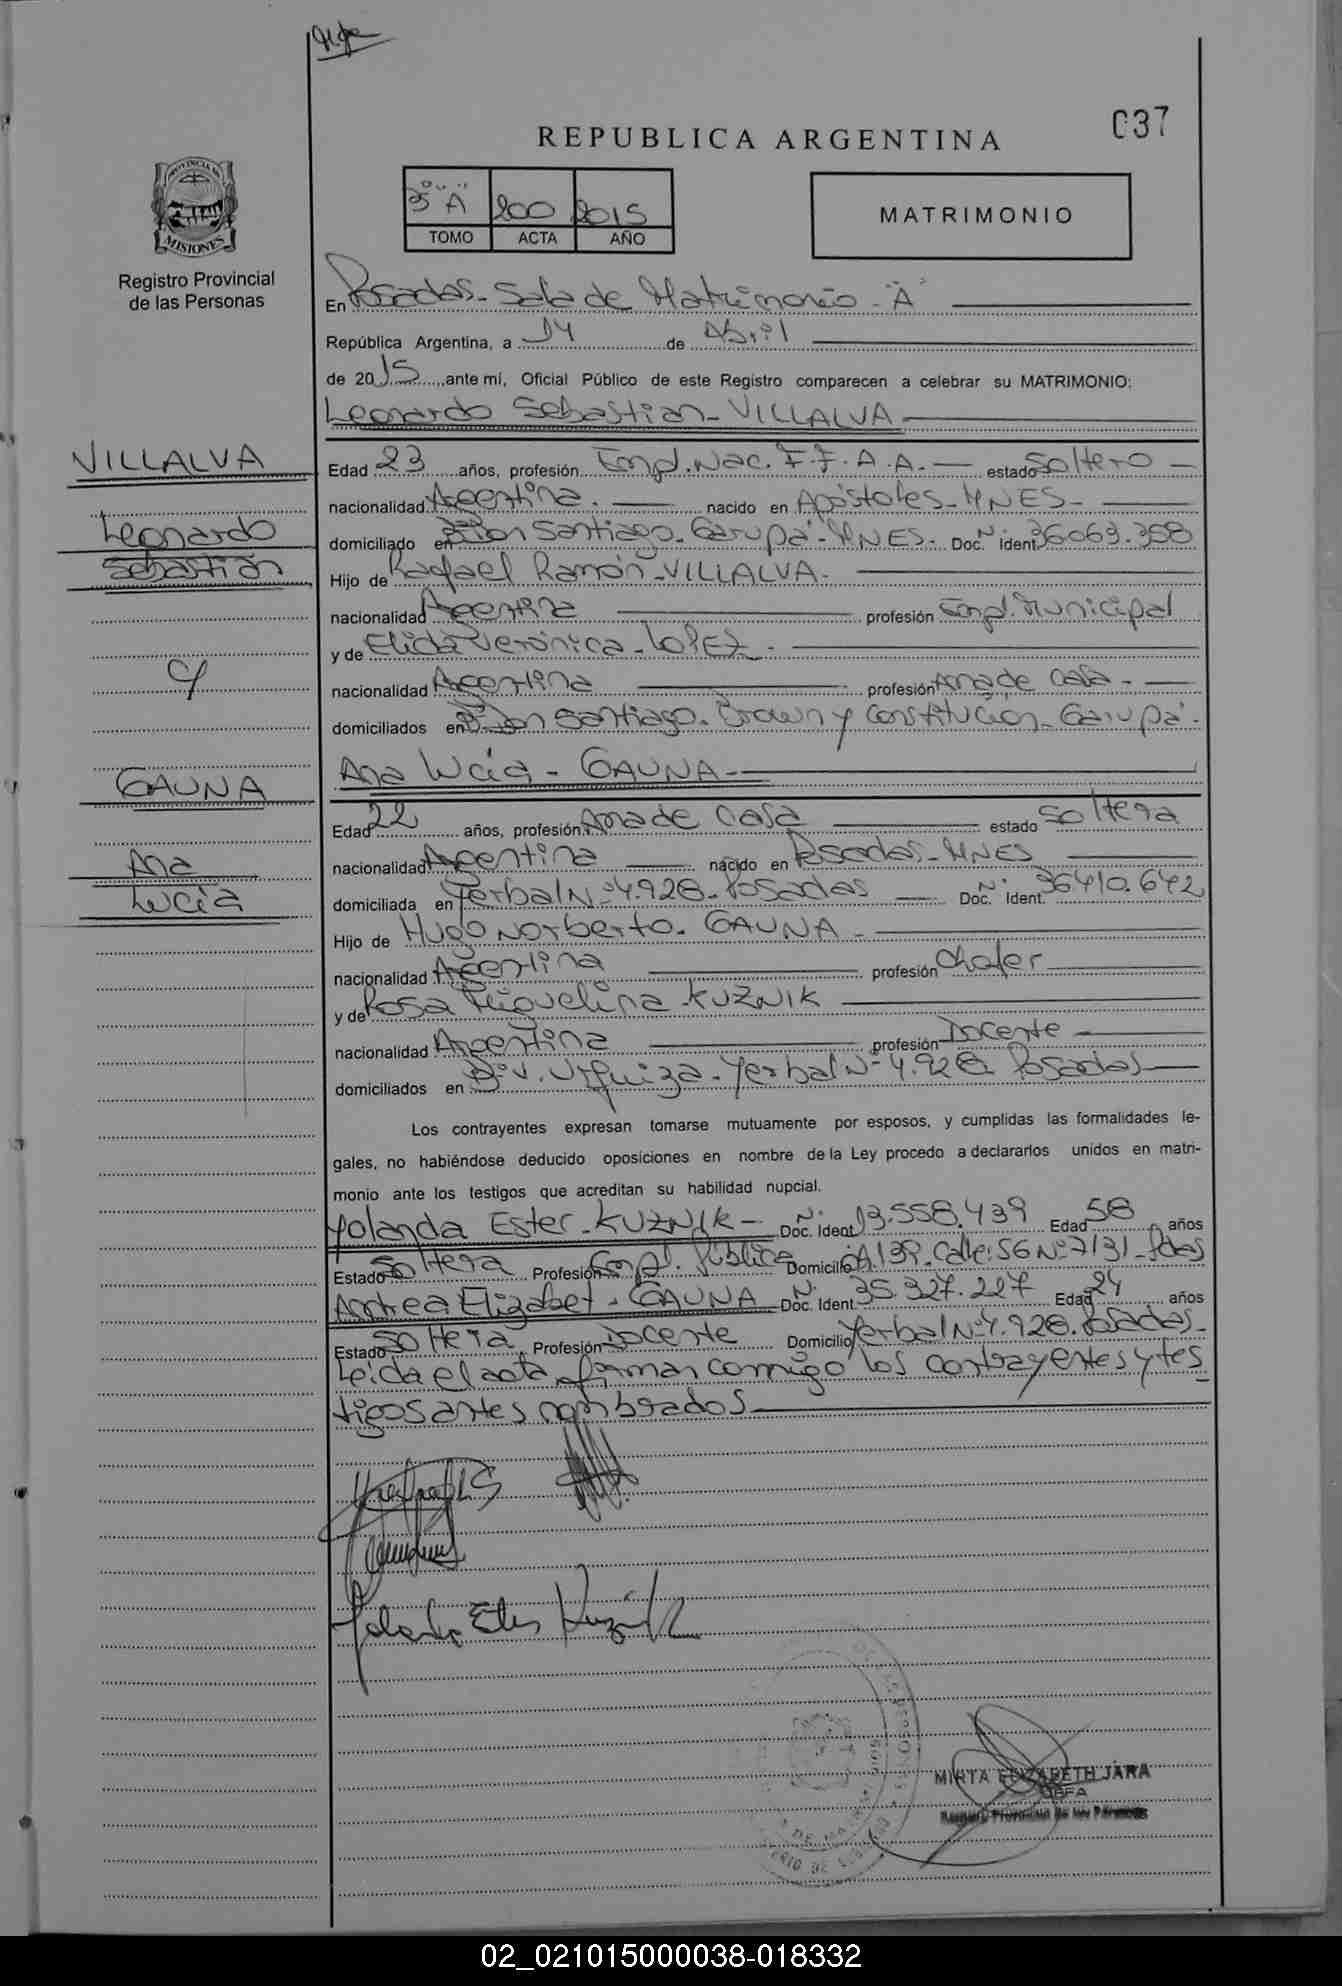 037
REPUBLICA ARGENTINA
3º "A" 200 2015
TOMO ACTA AÑO
MATRIMONIO
PROVINCIA DE
MISIONES
Registro Provincial
de las Personas
En Posadas - Sala de Matrimonio - "A"
República Argentina, a 14 de Abril
de 2015, ante mí, Oficial Público de este Registro comparecen a celebrar su MATRIMONIO:
Leonardo Sebastian - VILLALVA
VILLALVA
Leonardo
Sebastián
c/
GAUNA
Ana
Lucia
Edad 23 años, profesión Empl. Nac. F.F.A.A. - estado soltero -
nacionalidad Argentina. nacido en Apóstoles - MNES -
domiciliado en Bº Don Santiago. Garupá - MNES - Doc. Nº ident 36063.358
Hijo de Rafael Ramón - VILLALVA -
nacionalidad Argentina profesión Empl. Municipal
y de Elida Verónica - LOPEZ -
nacionalidad Argentina profesión Ama de casa -
domiciliados en Bº Don Santiago. Brown y Constitución - Garupá -
Ana Lucia - GAUNA -
Edad 22 años, profesión Ama de Casa estado soltera
nacionalidad Argentina nacido en Posadas - MNES
domiciliada en Yerbal Nº 4.928 - Posadas Doc. Nº Ident. 36.410.642
Hijo de Hugo Norberto - GAUNA -
nacionalidad Argentina profesión Chofer
y de Rosa Miguelina KUZNIK
nacionalidad Argentina profesión Docente -
domiciliados en Bº V. Urquiza - Yerbal Nº 4.928 Posadas
Los contrayentes expresan tomarse mutuamente por esposos, y cumplidas las formalidades le-
gales, no habiéndose deducido oposiciones en nombre de la Ley procedo a declararlos unidos en matri-
monio ante los testigos que acreditan su habilidad nupcial.
Yolanda Ester - KUZNIK - Doc. Nº Ident 13.558.439 Edad 58 años
Estado soltera Profesión Empl. Pública Domicilio Calle: 56 Nº 7131 - Pdas
Andrea Elizabet - GAUNA Doc. Nº Ident 35.327.227 Edad 24 años
Estado soltera Profesión Docente Domicilio Yerbal Nº 4.928 - Posadas -
Leida el acta, firman comigo los contrayentes y tes
tigos antes nombrados
Yolanda Ester Kuznik
MIRTA ELIZABETH JARA
JEFA
Registro Provincial de las Personas
02_021015000038-018332